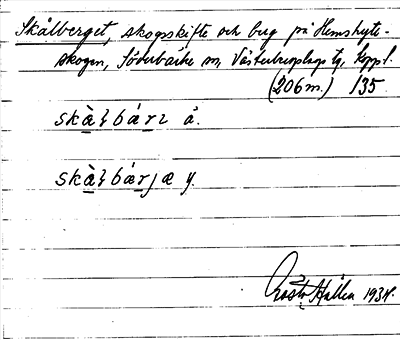 Skålberget, skogsskifte och berg på Hemshytte-
skogen, Söderbärke sn, Västerbergslags tg, Koppl.
(206 m.) 135
skàl bár å.
skàl bárjæ y.
Gösta Hallén 1934.